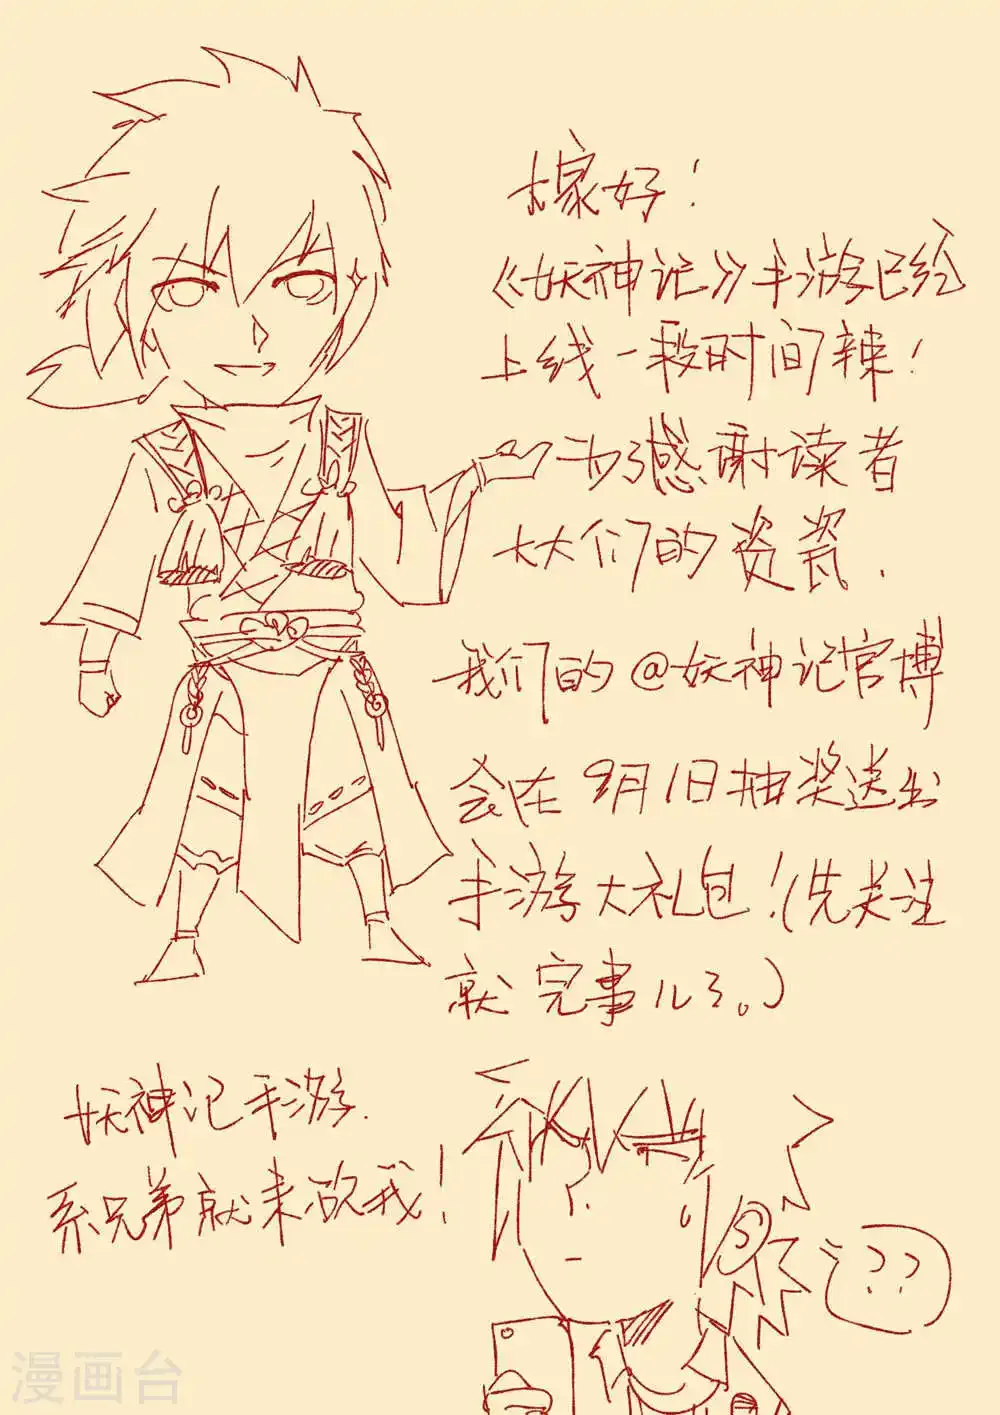 大家好！
《妖神记》手游已经
上线一段时间辣！
为了感谢读者
大大们的资瓷.
我们的@妖神记官博
会在9月1日抽奖送出
手游大礼包！（先关注
就完事儿了。）
妖神记手游.
系兄弟就来砍我！
??
漫画台